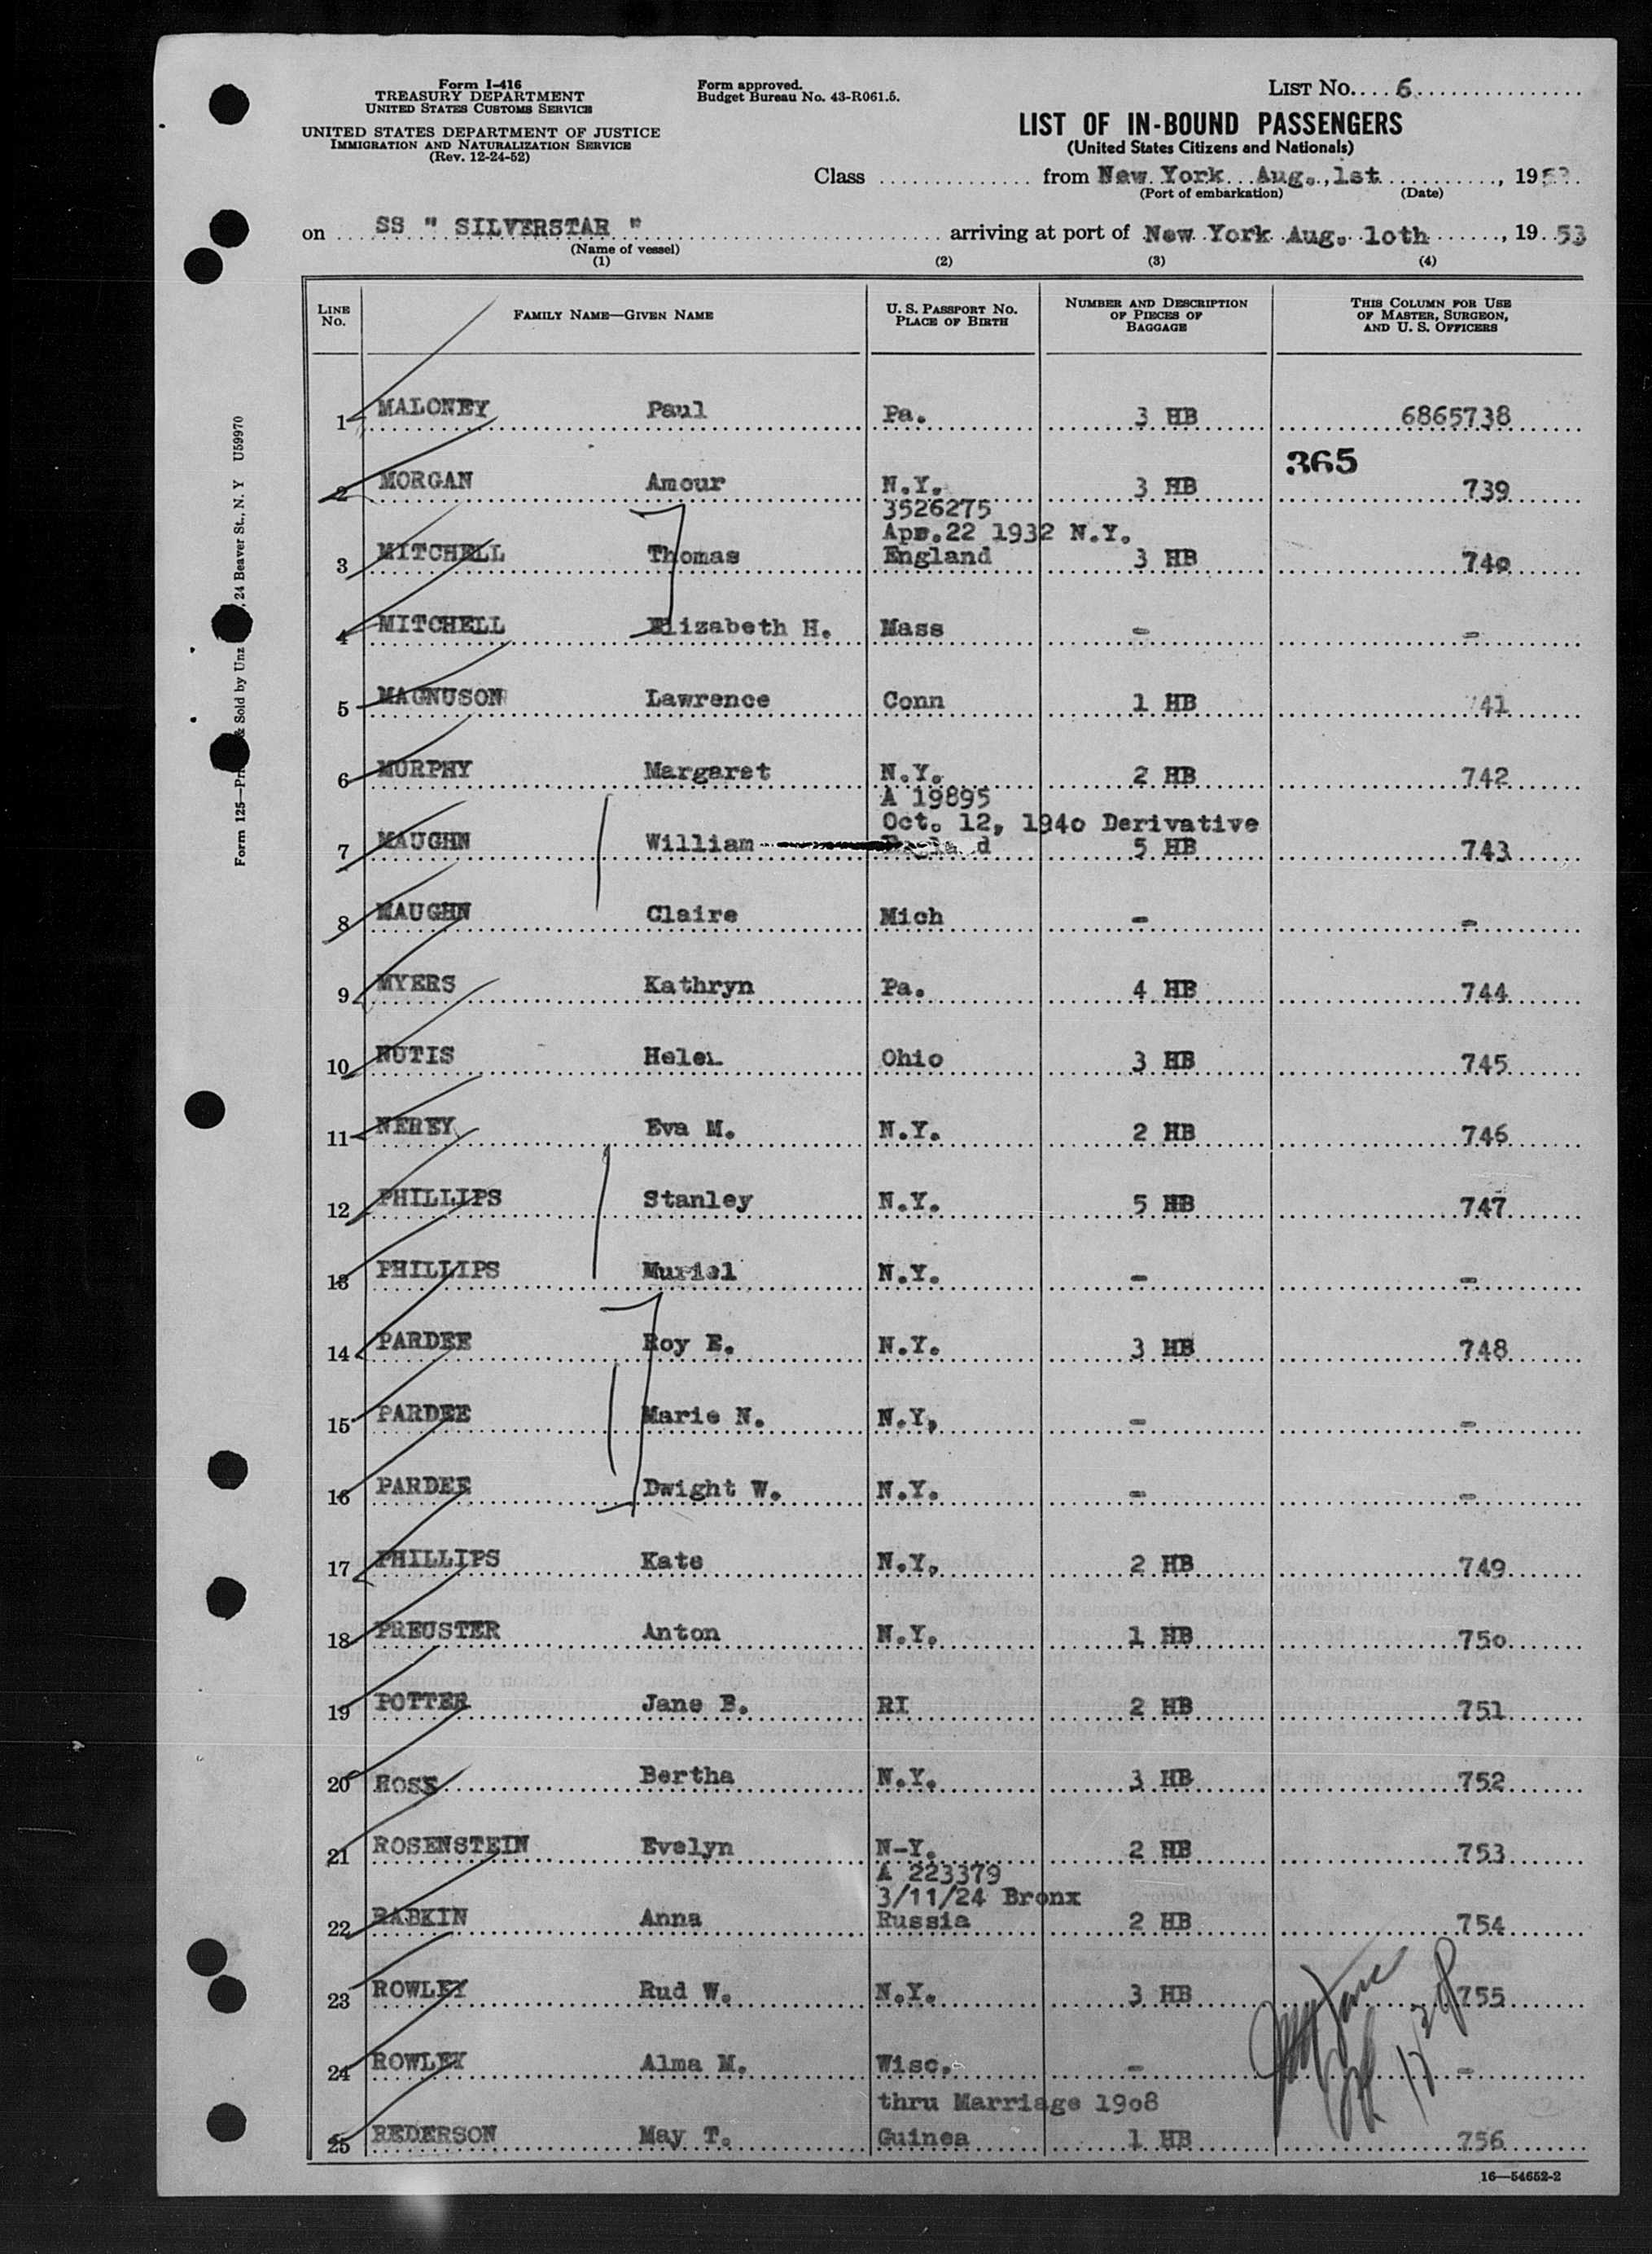 Form I-416
TREASURY DEPARTMENT
UNITED STATES CUSTOMS SERVICE
UNITED STATES DEPARTMENT OF JUSTICE
IMMIGRATION AND NATURALIZATION SERVICE
(Rev. 12-24-52)
Form approved.
Budget Bureau No. 43-R061.5.
LIST No. 6
LIST OF IN-BOUND PASSENGERS
(United States Citizens and Nationals)
Class from New York Aug., 1st, 19
(Port of embarkation) (Date)
on SS " SILVERSTAR " arriving at port of New York Aug. 10th, 19 53
(Name of vessel)
(1) (2) (3) (4)
LINE No. FAMILY NAME—GIVEN NAME U. S. PASSPORT No. PLACE OF BIRTH NUMBER AND DESCRIPTION OF PIECES OF BAGGAGE THIS COLUMN FOR USE OF MASTER, SURGEON, AND U. S. OFFICERS
1 MALONEY Paul Pa. 3 HB 6865738
365
2 MORGAN Amour N.Y. 3 HB 739
3526275
Apr.22 1932 N.Y.
3 MITCHELL Thomas England 3 HB 740
4 MITCHELL Elizabeth H. Mass - -
5 MAGNUSON Lawrence Conn 1 HB 41
6 MURPHY Margaret N.Y. 2 HB 742
A 19895
Oct. 12, 1940 Derivative
7 MAUGHN William 5 HB 743
8 MAUGHN Claire Mich - -
9 MYERS Kathryn Pa. 4 HB 744
10 NUTIS Helen Ohio 3 HB 745
11 NEREY Eva M. N.Y. 2 HB 746
12 PHILLIPS Stanley N.Y. 5 HB 747
13 PHILLIPS Muriel N.Y. - -
14 PARDEE Roy E. N.Y. 3 HB 748
15 PARDEE Marie N. N.Y, - -
16 PARDEE Dwight W. N.Y. - -
17 PHILLIPS Kate N.Y, 2 HB 749
18 PREUSTER Anton N.Y. 1 HB 750
19 POTTER Jane B. RI 2 HB 751
20 ROSS Bertha N.Y. 3 HB 752
21 ROSENSTEIN Evelyn N-Y. 2 HB 753
A 223379
3/11/24 Bronx
22 RABKIN Anna Russia 2 HB 754
23 ROWLEY Rud W. N.Y. 3 HB 755
24 ROWLEY Alma M. Wisc. - -
thru Marriage 1908
25 REDERSON May T. Guinea 1 HB 756
16—54652-2
24 Beaver St., N. Y U59970
Form 125—
& Sold by Unz